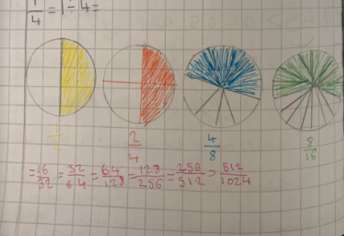 1/4 = 1 ÷ 4 =
1/2 2/4 4/8 8/16
= 16/32 = 32/64 = 64/128 = 128/256 = 256/512 = 512/1024